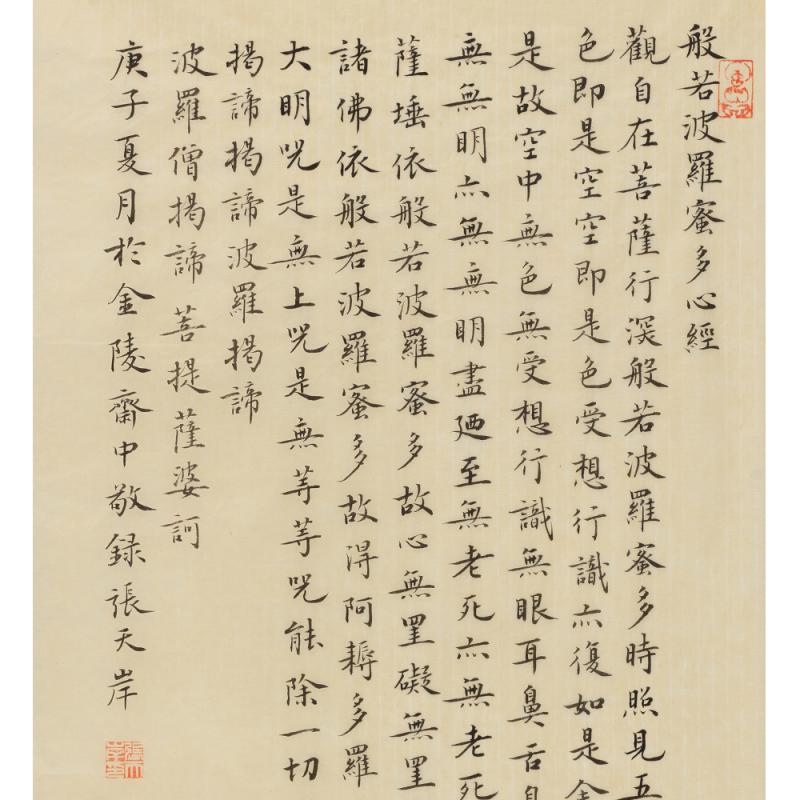 般若波羅蜜多心經
觀自在菩薩行深般若波羅蜜多時照見五
色即是空空即是色受想行識亦復如是舍
是故空中無色無受想行識無眼耳鼻舌身
無無明亦無無明盡廼至無老死亦無老死
薩埵依般若波羅蜜多故心無罣礙無罣
諸佛依般若波羅蜜多故得阿耨多羅
大明咒是無上咒是無等等咒能除一切
揭諦揭諦波羅揭諦
波羅僧揭諦菩提薩婆訶
庚子夏月於金陵齋中敬録張天岸